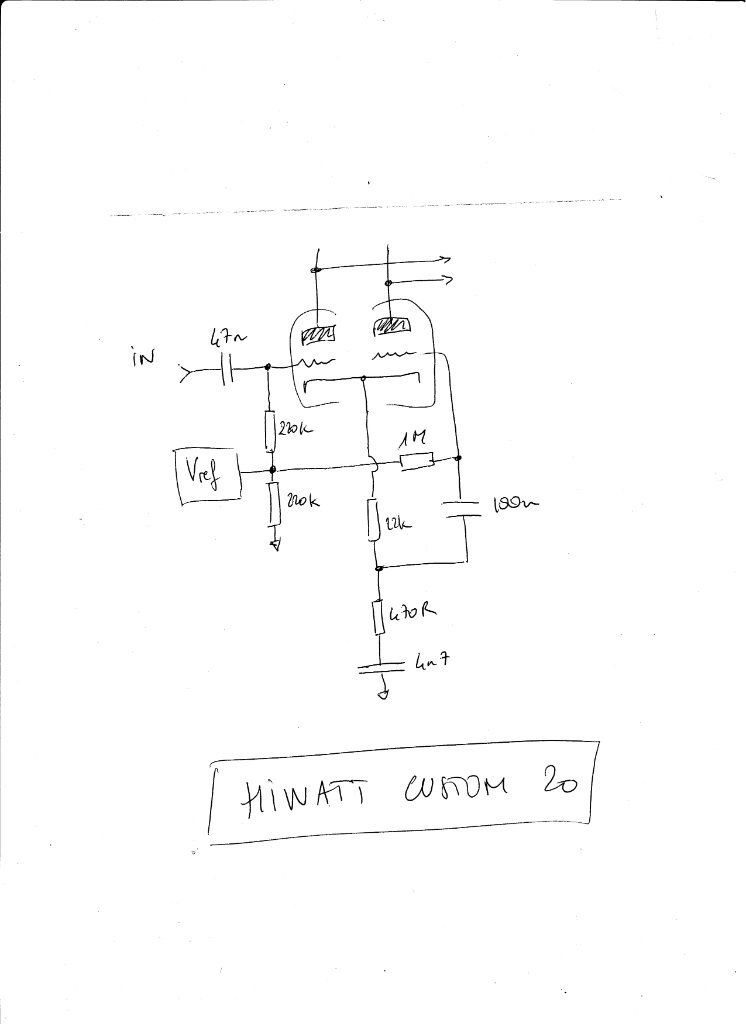 47n
iN
220k
1M
Vref
220k
100n
22k
470R
4n7
HiWATT CUSTOM 20